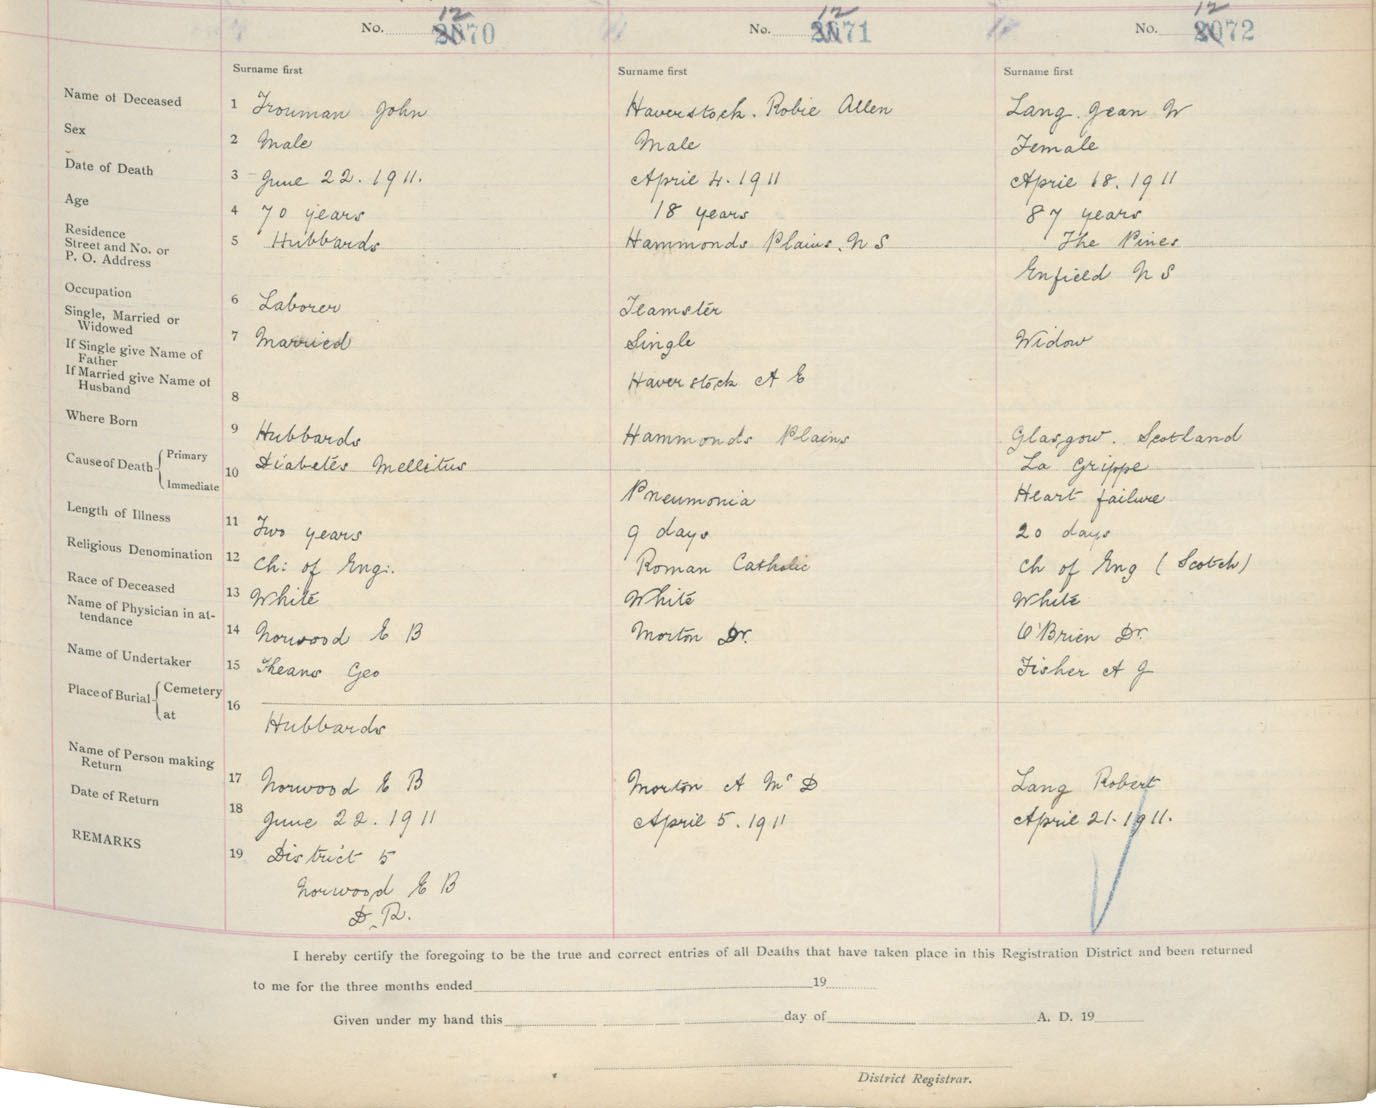 No. 12 2070 No. 12 2071 No. 12 2072
Surname first Surname first Surname first
Name of Deceased 1 Trouman John Haverstock. Robie Allen Lang. Jean W
Sex 2 Male Male Female
Date of Death 3 June 22. 1911. April 4. 1911 April 18. 1911
Age 4 70 years 18 years 87 years
Residence
Street and No. or 5 Hubbards Hammonds Plains. N S The Pines
P. O. Address Enfield N S
Occupation 6 Laborer Teamster
Single, Married or
Widowed 7 Married Single Widow
If Single give Name of
Father
If Married give Name of
Husband 8 Haverstock A E
Where Born 9 Hubbards Hammonds Plains Glasgow. Scotland
Cause of Death Primary 10 Diabetes Mellitus La Grippe
Immediate Pneumonia Heart failure
Length of Illness 11 Two years 9 days 20 days
Religious Denomination 12 Ch: of Eng:. Roman Catholic Ch of Eng (Scotch)
Race of Deceased 13 White White White
Name of Physician in at-
tendance 14 Norwood E B Morton Dr. O'Brien Dr.
Name of Undertaker 15 Geo Fisher A J
Place of Burial Cemetery 16
at Hubbards
Name of Person making
Return 17 Norwood E B Morton A McD Lang Robert
Date of Return 18 June 22. 1911 April 5. 1911 April 21. 1911.
REMARKS 19 District 5
Norwood E B
D. R.
I hereby certify the foregoing to be the true and correct entries of all Deaths that have taken place in this Registration District and been returned
to me for the three months ended 19
Given under my hand this day of A. D. 19
District Registrar.